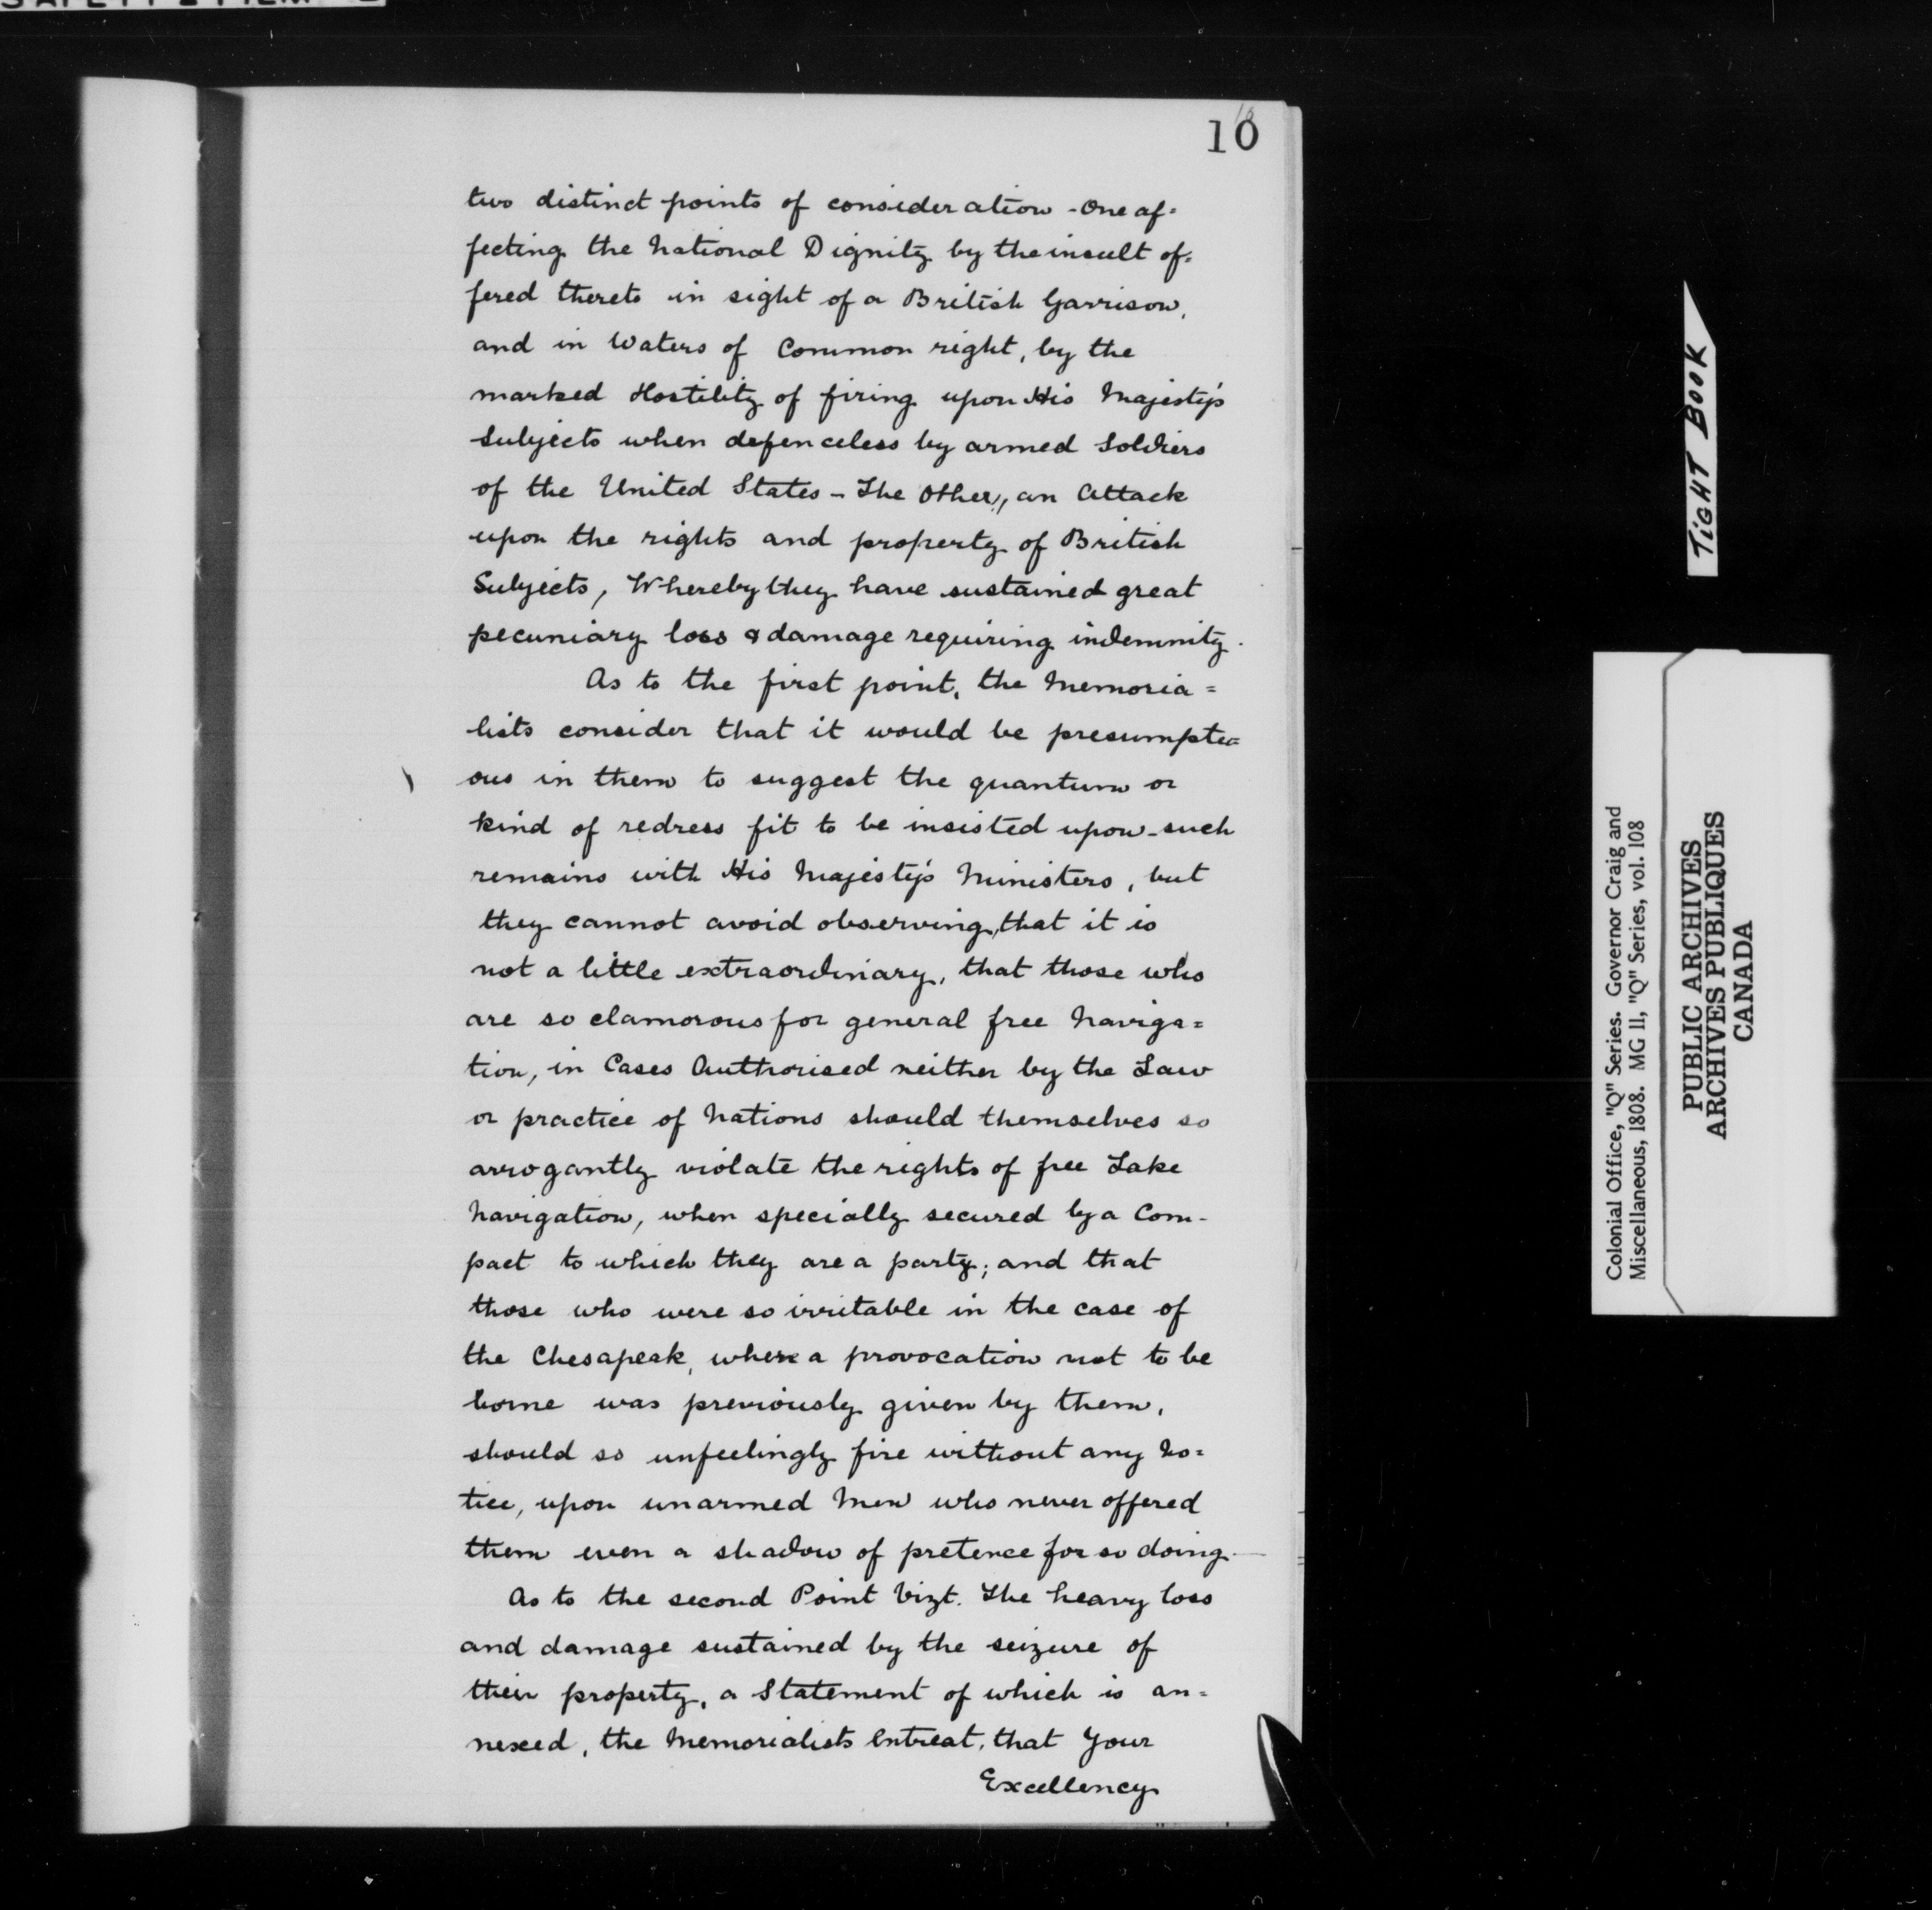 10
two distinct points of consideration - One af=
fecting the National Dignity by the insult of=
fered thereto in sight of a British Garrison,
and in Waters of Common right, by the
marked Hostility of firing upon His Majesty's
Subjects when defenceless by armed Soldiers
of the United States - The Other, an Attack
upon the rights and property of British
Subjects, Whereby they have sustained great
pecuniary loss & damage requiring indemnity.
As to the first point, the Memoria=
lists consider that it would be presumptu=
ous in them to suggest the quantum or
kind of redress fit to be insisted upon - such
remains with His Majesty's Ministers, but
they cannot avoid observing, that it is
not a little extraordinary, that those who
are so clamorous for general free Naviga=
tion, in Cases Authorised neither by the Law
or practice of Nations should themselves so
arrogantly violate the rights of free Lake
Navigation, when specially secured by a Com-
pact to which they are a party; and that
those who were so irritable in the case of
the Chesapeak, where a provocation not to be
borne was previously given by them,
should so unfeelingly fire without any No=
tice, upon unarmed Men who never offered
them even a shadow of pretence for so doing.—
As to the second Point Vizt. The heavy loss
and damage sustained by the seizure of
their property, a Statement of which is an=
nexed, the Memorialists Entreat, that Your
Excellency
TIGHT BOOK
Colonial Office, "Q" Series. Governor Craig and
Miscellaneous, 1808. MG 11, "Q" Series, vol. 108
PUBLIC ARCHIVES
ARCHIVES PUBLIQUES
CANADA